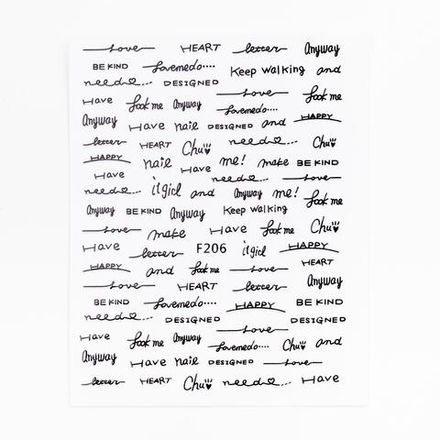 Love HEART letter Anyway
BE KIND Lovemedo.... Keep Walking and
need... DESIGNED
Love
Have look me Anyway Lovemedo.... look me
Anyway Have nail DESIGNED and HAPPY
letter HEART Chu need... Chu
HAPPY nail Have me! make BE KIND
Have need...
need... itgirl and Anyway me! look me
Anyway BE KIND Anyway Keep Walking
Love make Have look me Chu
Have letter F206 itgirl HAPPY
HAPPY and look me Love HEART
Love HEART letter Anyway
BE KIND Lovemedo.... HAPPY BE KIND
need... DESIGNED DESIGNED
Love
Have look me Anyway Lovemedo.... Chu and
Anyway Have nail DESIGNED Love
letter HEART Chu need... Have